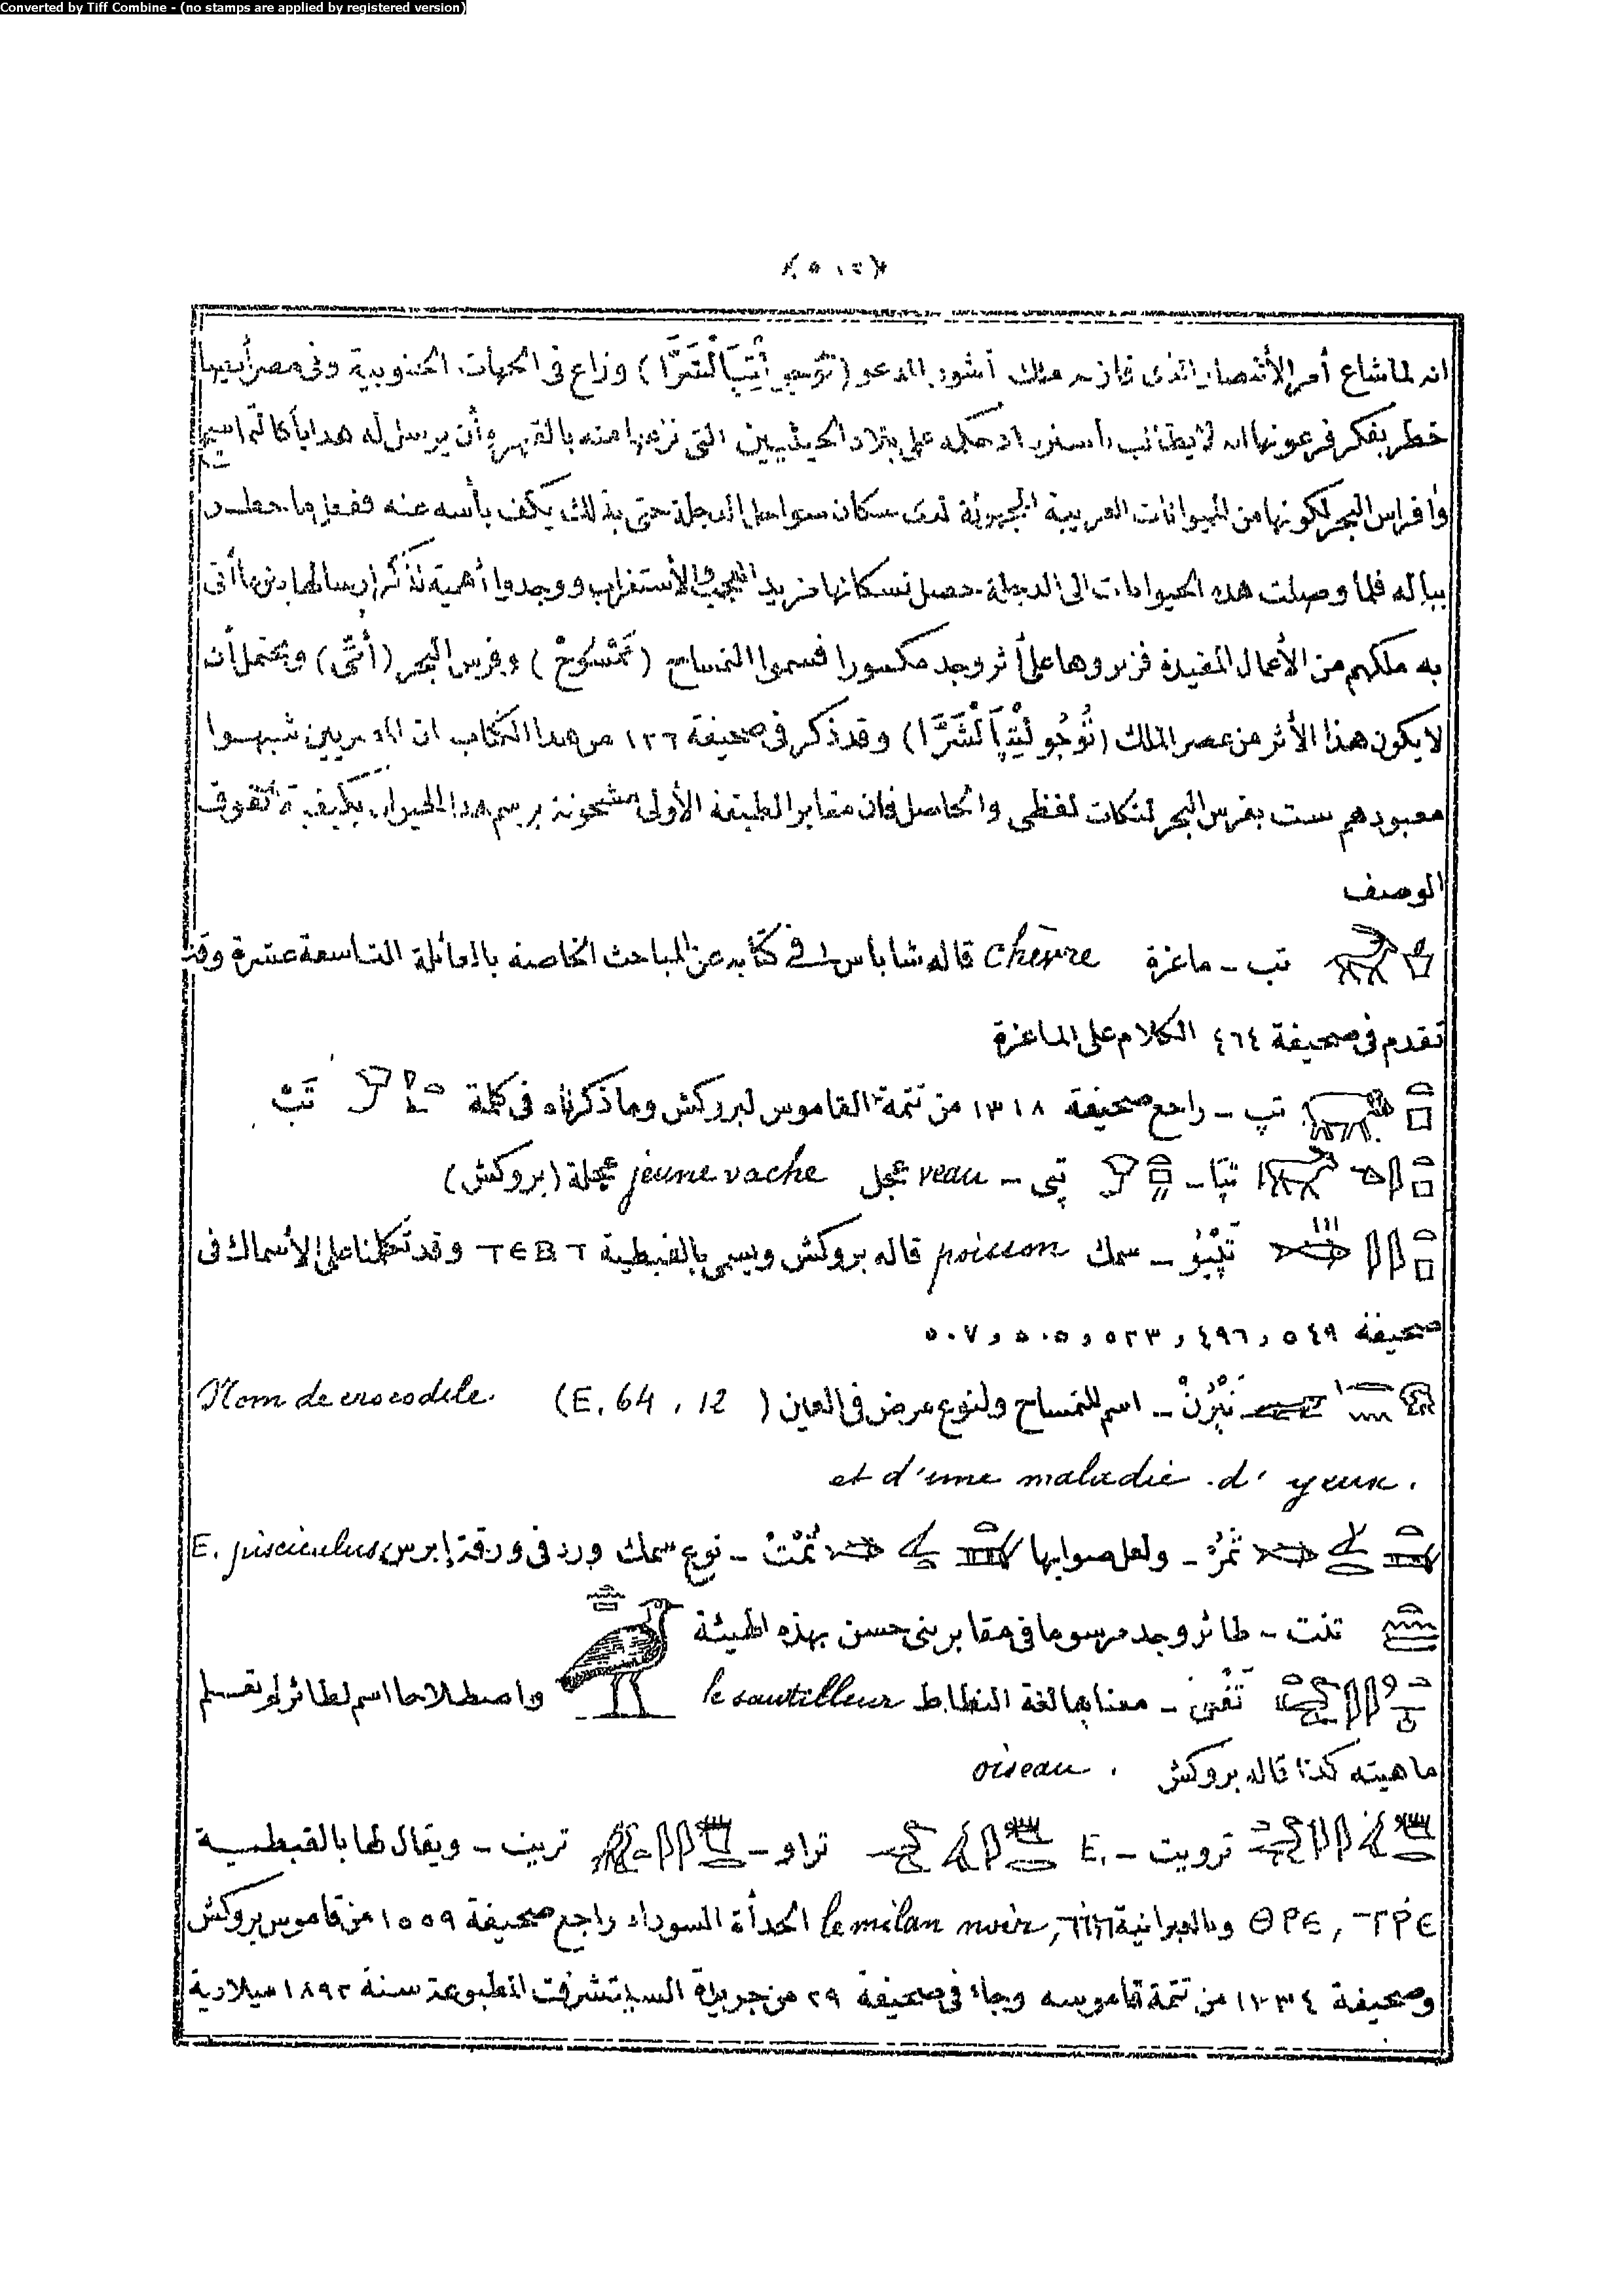 Converted by Tiff Combine - (no stamps are applied by registered version)
انه لما شاع أمر الأنتصار الذى فاز به ملك أشور المدعو وزاع فى الجهات الجنوبية وفى مصر
خطر بفكر فرعونها انه على بلاد الحيثيين التى نزعها منه بالقهر وأن يرسل له هدايا كالتماسيح
وأفراس البحر لكونها من الحيوانات الغريبة المجهولة لدى سكان سواحل الدجلة حتى بذلك يكف بأسه عنه ففعل ما خطر
بباله فلما وصلت هذه الحيوانات الى الدجلة حصل لسكانها مزيد العجب والأستغراب ووجدوا أهمية لذكر ارسالها
به ملكهم من الأعمال المفيدة فزبروها على أثر وجد مكسورا فسموا التمساح (تَمْسُوخْ) وفرس البحر ويحتمل أن
لا يكون هذا الأثر من عصر الملك وقد ذكر فى صحيفة ١٢٦ من هذا الكتاب ان المصريين شبهوا
معبودهم ست بفرس البحر لنكات لفظى والحاصل فان مقابر الطبقة الأولى مشحونة برسم هذا الحيوان بكيفية تفوق
الوصف
تب - ماعزة chèvre قاله شاباس فى كتابه عن المباحث الخاصة بالعائلة التاسعة عشرة وقد
تقدم فى صحيفة ٤٦٤ الكلام على الماعزة
تپ - راجع صحيفة ١٣١٨ من تتمة القاموس لبروكش وما ذكرناه فى كلمة تَبْ
تپَا - تپى - veau عجل jeune vache عجلة (بروكش)
سمك poisson قاله بروكش ويسمى بالقبطية ΤΕΒΤ وقد تكلمنا على الأسماك فى
صحيفة ٥٤٩ و ٤٩٦ و ٥٢٣ و ٥٠٥ و ٥٠٧
اسم للتمساح ولنوع مرض فى العين (E. 64, 12) Nom de crocodile
et d'une maladie d'yeux.
ولعل صوابها - نوع سمك ورد فى ورقة إبرس E. pisciculus
تنت - طائر وجد مرسوما فى مقابر بنى حسن بهذه الهيئة
معناها لغة النطاط le sautilleur واصطلاحا اسم لطائر لم تعلم
ماهيته كذا قاله بروكش oiseau.
ترويت - E. تراو - تريت - ويقال لها بالقبطية
ΘΡΕ, ΤΡΕ وبالعبرانية le milan noir, الحدأة السوداء راجع صحيفة ١٥٥٩ من قاموس بروكش
وصحيفة ١٣٣٤ من تتمة قاموسه وجاء فى صحيفة ٢٩ من جريدة المطبوعة سنة ١٨٩٢ ميلادية